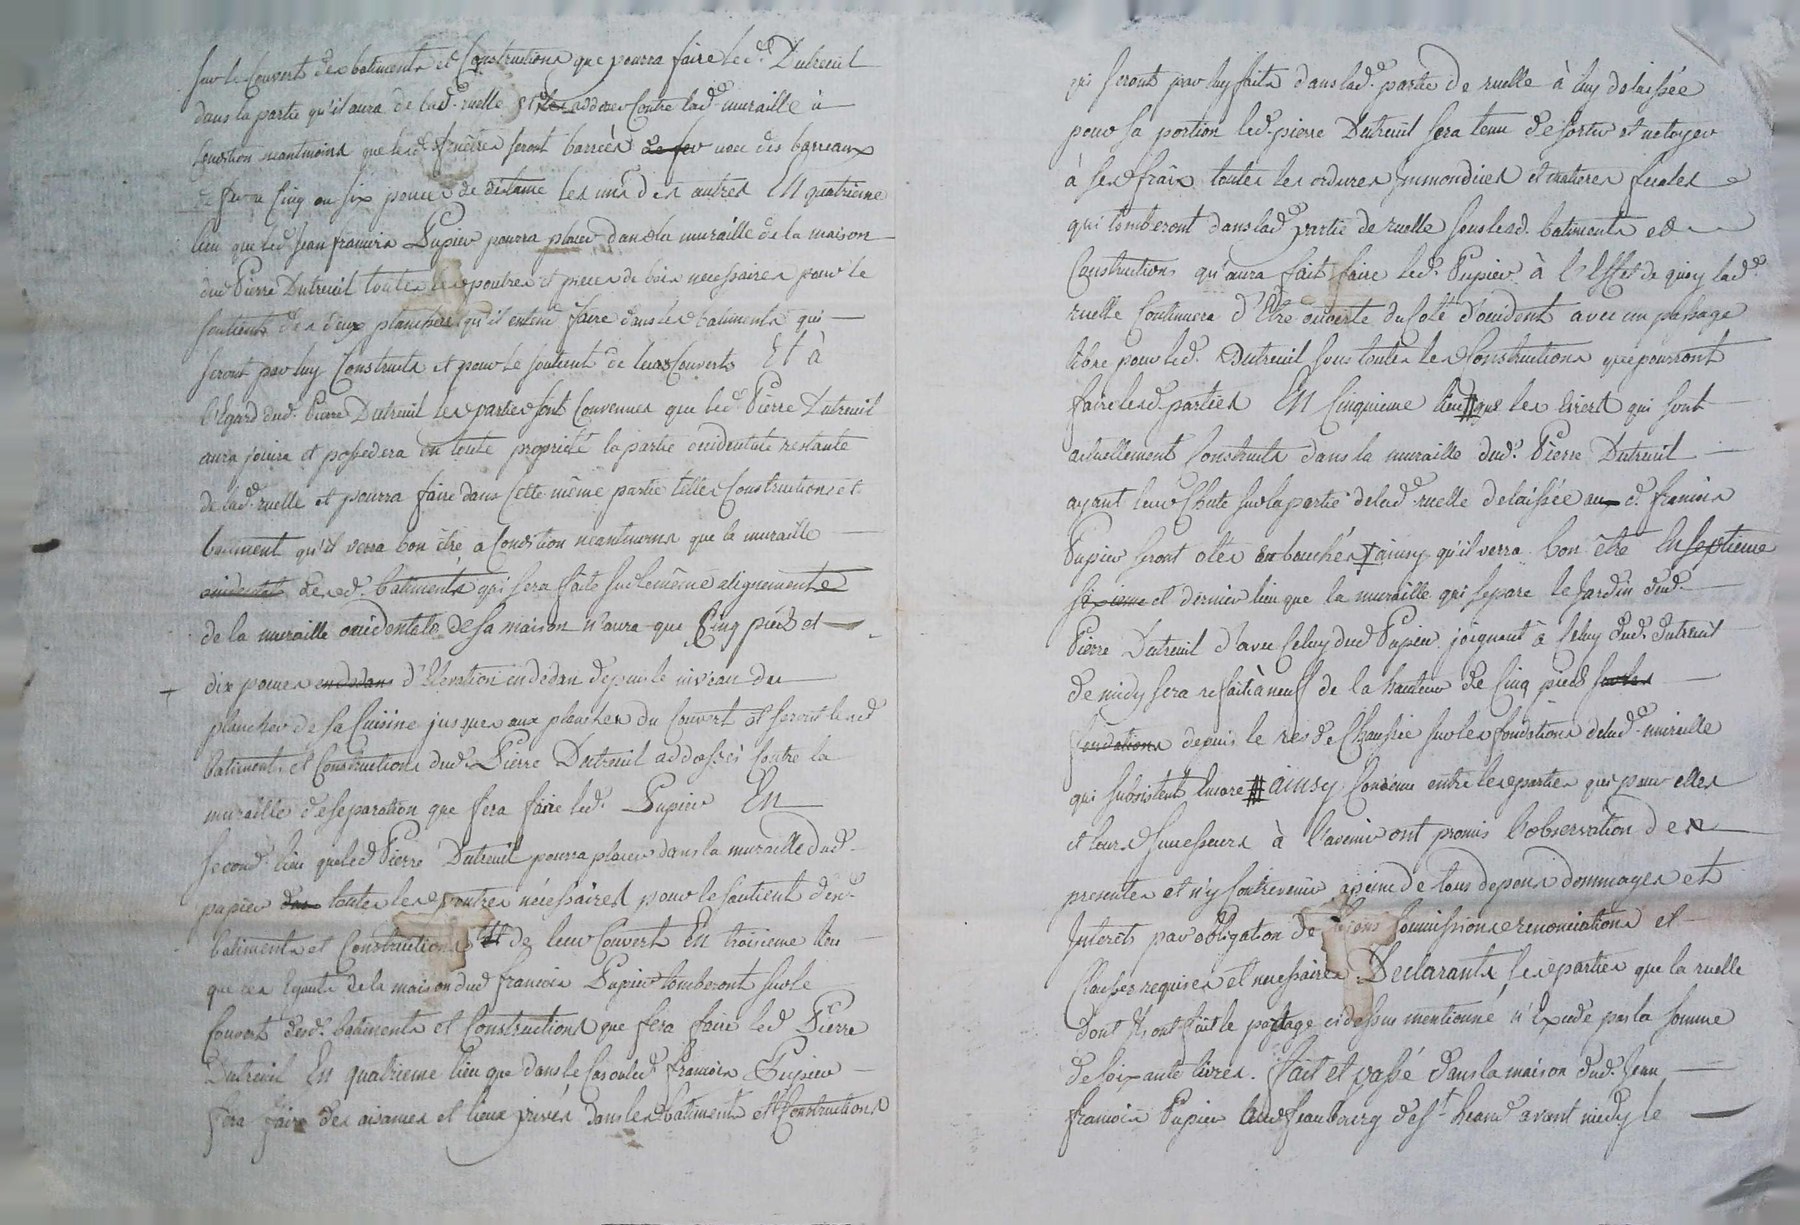 sur le couvert des batiments et Constructions que pourra faire led. Dutreuil
dans la partie qu'il aura de lad. ruelle et adosser contre lad. muraille à
Condition neantmoins que lesd. fenêtres seront barrées de fer avec des barreaux
de fer a Cinq ou six pouces de distance les uns des autres En quatrieme
lieu que led. Jean francois Pupier pourra placer dans la muraille de la maison
dud. Pierre Dutreuil toutes les poutres et pieces de bois necessaires pour le
soutient des deux planchers qu'il entend faire dans les batiments qui
seront par luy Construits et pour le soutient de leurs Couverts Et à
l'Egard dud. Pierre Dutreuil les parties sont Convenues que led. Pierre Dutreuil
aura jouira et possedera en toute proprieté la partie occidentale restante
de lad. ruelle et pourra faire dans Cette même partie telles Constructions et
batiment qu'il verra bon être a Condition neantmoins que la muraille
occidentale desd. batiments qui sera faite sur le même alignement
de la muraille occidentale de sa maison n'aura que Cinq pieds et
dix pouces en dedans d'Elevation en dedan depuis le niveau du
plancher de sa Cuisine jusques aux planches du Couvert et seront lesd.
batiments et Constructions dud. Pierre Dutreuil addossés Contre la
muraille de separation que fera faire led. Pupier En
second lieu que led. Pierre Dutreuil pourra placer dans la muraille dud.
pupier toutes les poutres nécéssaires pour le soutient desd.
batiments et Constructions et de leur Couvert En troisieme lieu
que les Egouts de la maison dud. francois Pupier tomberont sur le
Couvert desd. batiments et Constructions que fera faire led. Pierre
Dutreuil En quatrieme lieu que dans le Cas ou led. francois Pupier
fera faire des aisances et lieux privés dans les bâtiments et Constructions
qui seront par luy faits dans lad. partie de ruelle à luy delaissée
pour sa portion led. pierre Dutreuil sera tenu de sortir et netoyer
à ses frais toutes les ordures Immondices et matieres fecales
qui tomberont dans lad. partie de ruelle sous lesd. batiments et
Constructions qu'aura fait faire led. Pupier à l'Effet de quoy lad.
ruelle Continuera d'Etre ouverte du Coté d'occident avec un passage
libre pour led. Dutreuil sous toutes les Constructions que pourront
faire lesd. parties En Cinquieme lieu # que les Eviers qui sont
actuellement Construits dans la muraille dud. Pierre Dutreuil
ayant leur Chute sur la partie de lad. ruelle delaissée aud. francois
Pupier seront otés ou bouchés ainsy qu'il verra bon être En septieme
sixieme et dernier lieu que la muraille qui separe le Jardin dud.
Pierre Dutreuil d'avec Celuy dud. Pupier joignant à Celuy dud. Dutreuil
de midy sera refaite à neuf de la hauteur de Cinq pieds sur les
fondations depuis le res de Chaussée sur les fondations de lad. muraille
qui subsistent Encore # ainsy Convenu entre les parties qui pour elles
et leurs successeurs à l'avenir ont promis l'observation des
presentes et n'y Contrevenir a peine de tous depens dommages et
Interets par obligation de soumissions renonciations et
Clauses requises et necessaires Declarants les parties que la ruelle
dont ils ont fait le partage ci dessus mentionné n'Excede pas la somme
de soixante livres. fait et passé dans la maison dud. Jean
francois Pupier au feaubourg de st. heand avant midy le